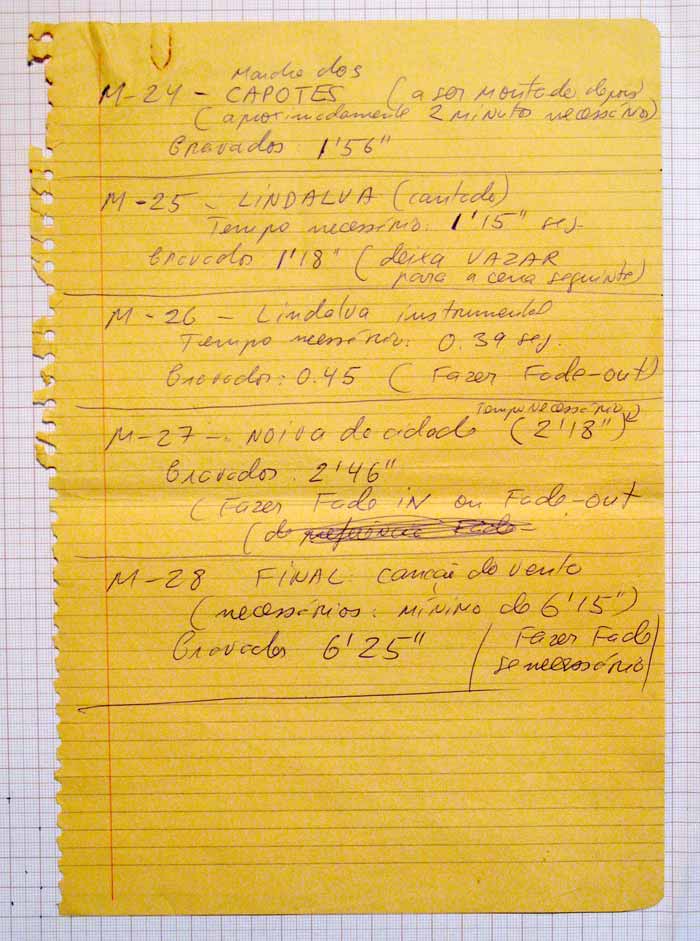 Marcha dos
M-24 - CAPOTES (a ser montada depois)
(aproximadamente 2 minutos necessários)
Gravados: 1'56"
M-25 - LINDALVA (cantado)
Tempo necessário: 1'15" seg.
Gravados 1'18" (deixa VAZAR
para a cena seguinte)
M-26 - Lindalva instrumental
Tempo necessário: 0.39 seg.
Gravados: 0.45 (Fazer Fade-out)
Tempo necessário
M-27 - Noiva da cidade (2'18")
Gravados: 2'46"
(Fazer Fade IN ou Fade-out
(de
M-28 FINAL: canção do vento
(necessários: mínimo de 6'15")
Gravados 6'25"
Fazer Fade
se necessário